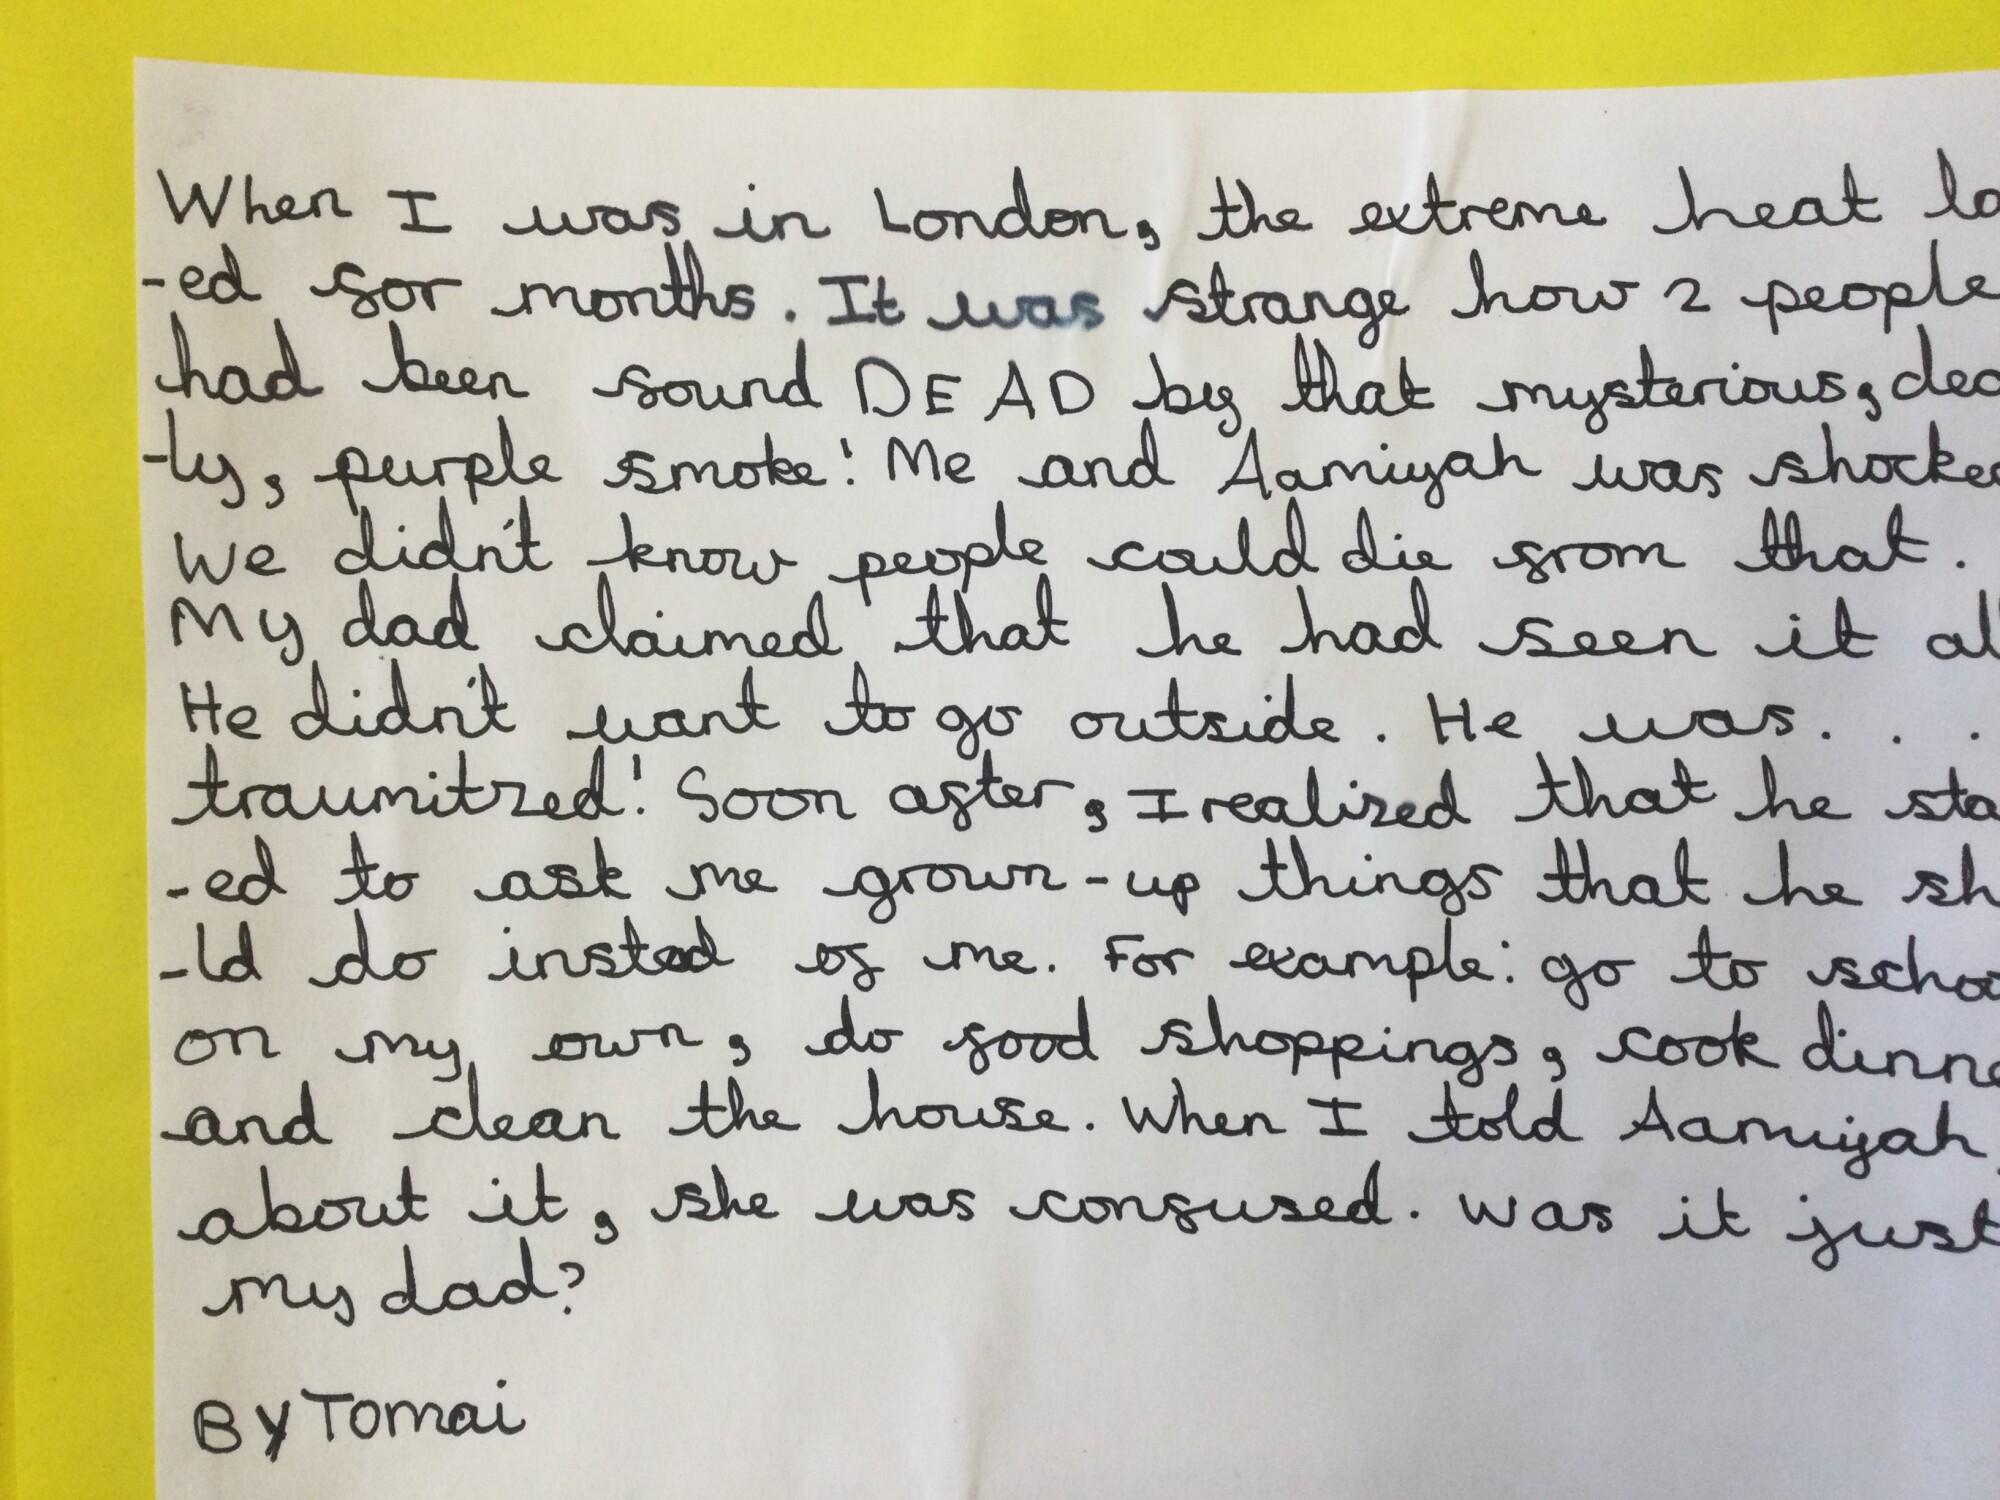 When I was in London, the extreme heat la
-ed for months. It was strange how 2 people
had been found DEAD by that mysterious, dea
-ly, purple smoke! Me and Aamiyah was shocke
We didn't know people could die from that.
My dad claimed that he had seen it al
He didn't want to go outside. He was. . .
traumitzed! Soon after, I realized that he sta
-ed to ask me grown-up things that he sh
-ld do instead of me. For example: go to schoo
on my own, do food shoppings, cook dinne
and clean the house. When I told Aamiyah
about it, she was confused. Was it just
my dad?
By Tomai